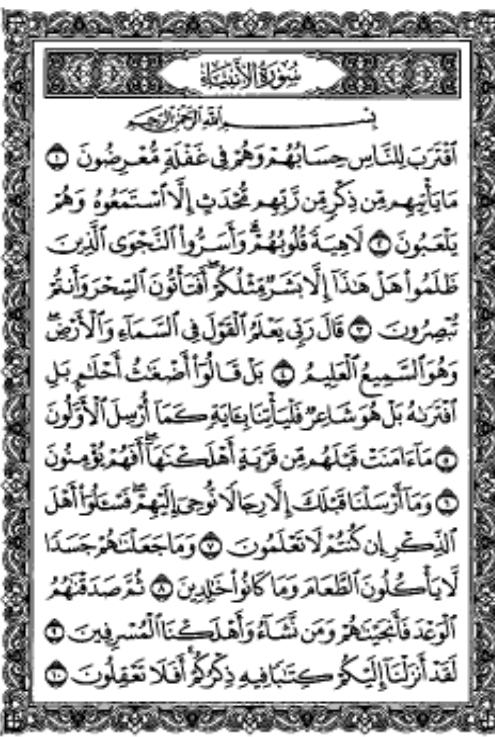 سُورَةُ الْأَنْبِيَاءِ
بِسْمِ ٱللَّهِ ٱلرَّحْمَٰنِ ٱلرَّحِيمِ
ٱقْتَرَبَ لِلنَّاسِ حِسَابُهُمْ وَهُمْ فِى غَفْلَةٍ مُّعْرِضُونَ ١
مَا يَأْتِيهِم مِّن ذِكْرٍ مِّن رَّبِّهِم مُّحْدَثٍ إِلَّا ٱسْتَمَعُوهُ وَهُمْ
يَلْعَبُونَ ٢ لَاهِيَةً قُلُوبُهُمْ ۗ وَأَسَرُّوا۟ ٱلنَّجْوَى ٱلَّذِينَ
ظَلَمُوا۟ هَلْ هَٰذَآ إِلَّا بَشَرٌ مِّثْلُكُمْ ۖ أَفَتَأْتُونَ ٱلسِّحْرَ وَأَنتُمْ
تُبْصِرُونَ ٣ قَالَ رَبِّى يَعْلَمُ ٱلْقَوْلَ فِى ٱلسَّمَآءِ وَٱلْأَرْضِ ۖ
وَهُوَ ٱلسَّمِيعُ ٱلْعَلِيمُ ٤ بَلْ قَالُوٓا۟ أَضْغَٰثُ أَحْلَٰمٍۭ بَلِ
ٱفْتَرَىٰهُ بَلْ هُوَ شَاعِرٌ فَلْيَأْتِنَا بِـَٔايَةٍ كَمَآ أُرْسِلَ ٱلْأَوَّلُونَ
٥ مَآ ءَامَنَتْ قَبْلَهُم مِّن قَرْيَةٍ أَهْلَكْنَٰهَآ ۖ أَفَهُمْ يُؤْمِنُونَ
٦ وَمَآ أَرْسَلْنَا قَبْلَكَ إِلَّا رِجَالًا نُّوحِىٓ إِلَيْهِمْ ۖ فَسْـَٔلُوٓا۟ أَهْلَ
ٱلذِّكْرِ إِن كُنتُمْ لَا تَعْلَمُونَ ٧ وَمَا جَعَلْنَٰهُمْ جَسَدًا
لَّا يَأْكُلُونَ ٱلطَّعَامَ وَمَا كَانُوا۟ خَٰلِدِينَ ٨ ثُمَّ صَدَقْنَٰهُمُ
ٱلْوَعْدَ فَأَنجَيْنَٰهُمْ وَمَن نَّشَآءُ وَأَهْلَكْنَا ٱلْمُسْرِفِينَ ٩
لَقَدْ أَنزَلْنَآ إِلَيْكُمْ كِتَٰبًا فِيهِ ذِكْرُكُمْ ۖ أَفَلَا تَعْقِلُونَ ١٠